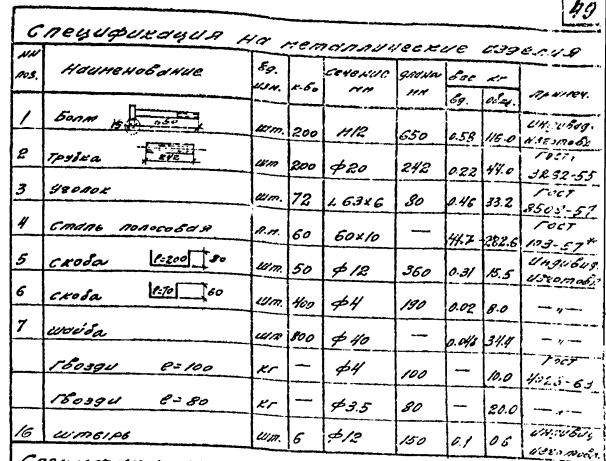 49
Спецификация на металлические изделия
NN поз. Наименование Ед. изм. к-во сечение мм длина мм вес кг примеч.
ед. общ.
1 Болт 650 шт. 200 М12 650 0.58 116.0 индивид. изготовл.
2 Трубка 242 шт 200 ф20 242 0.22 44.0 ГОСТ 3232-55
3 Уголок шт. 72 L 63х6 80 0.46 33.2 ГОСТ 8509-57
4 Сталь полосовая п.м. 60 60х10 — 282.6 ГОСТ 103-57*
5 скоба ℓ=200 80 шт. 50 ф12 360 0.31 15.5 индивид. изготовл.
6 скоба ℓ=70 60 шт. 400 ф4 190 0.02 8.0 — „ —
7 шайба шт 800 ф40 — 0.043 34.4 — „ —
гвозди ℓ=100 кг — ф4 100 — 10.0 ГОСТ 4028-63
гвозди ℓ=80 кг — ф3.5 80 — 20.0 — „ —
16 штырь шт. 6 ф12 150 0.1 0.6 индивид изготовл.